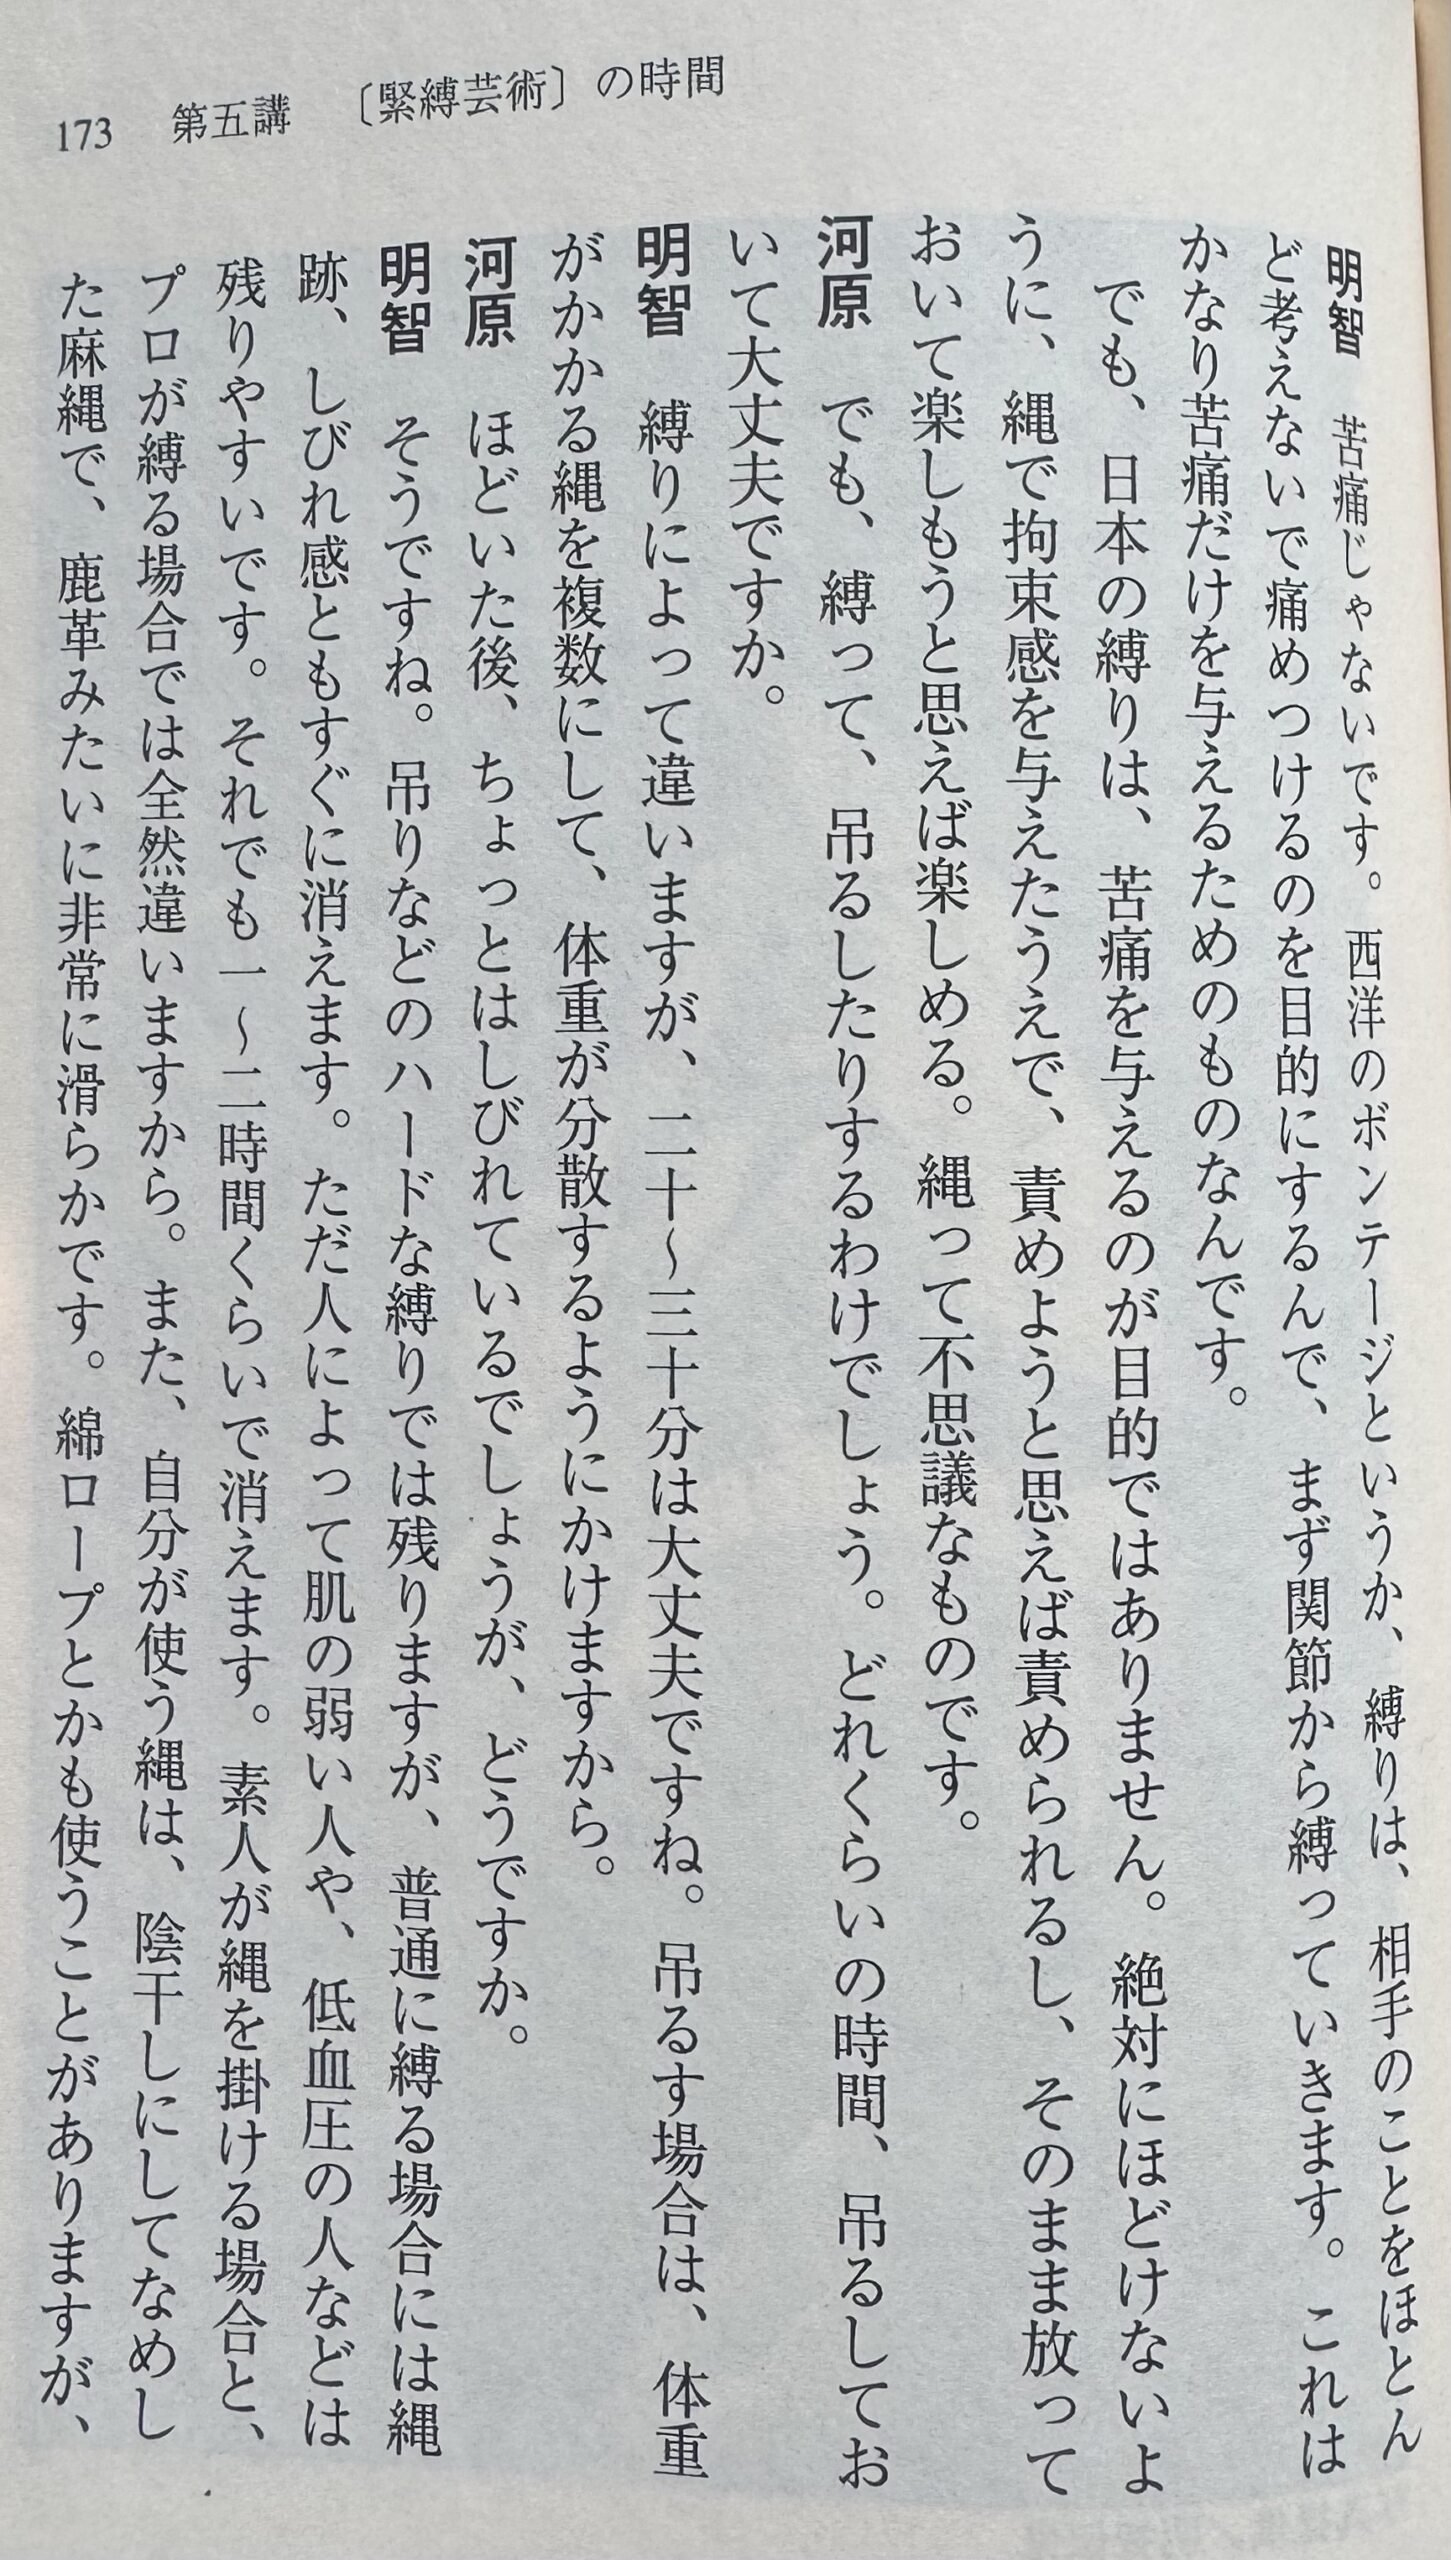 173　第五講　〔緊縛芸術〕の時間
明智　苦痛じゃないです。西洋のボンテージというか、縛りは、相手のことをほとん
ど考えないで痛めつけるのを目的にするんで、まず関節から縛っていきます。これは
かなり苦痛だけを与えるためのものなんです。
　でも、日本の縛りは、苦痛を与えるのが目的ではありません。絶対にほどけないよ
うに、縄で拘束感を与えたうえで、責めようと思えば責められるし、そのまま放って
おいて楽しもうと思えば楽しめる。縄って不思議なものです。
河原　でも、縛って、吊るしたりするわけでしょう。どれくらいの時間、吊るしてお
いて大丈夫ですか。
明智　縛りによって違いますが、二十〜三十分は大丈夫ですね。吊るす場合は、体重
がかかる縄を複数にして、体重が分散するようにかけますから。
河原　ほどいた後、ちょっとはしびれているでしょうが、どうですか。
明智　そうですね。吊りなどのハードな縛りでは残りますが、普通に縛る場合には縄
跡、しびれ感ともすぐに消えます。ただ人によって肌の弱い人や、低血圧の人などは
残りやすいです。それでも一〜二時間くらいで消えます。素人が縄を掛ける場合と、
プロが縛る場合では全然違いますから。また、自分が使う縄は、陰干しにしてなめし
た麻縄で、鹿革みたいに非常に滑らかです。綿ロープとかも使うことがありますが、